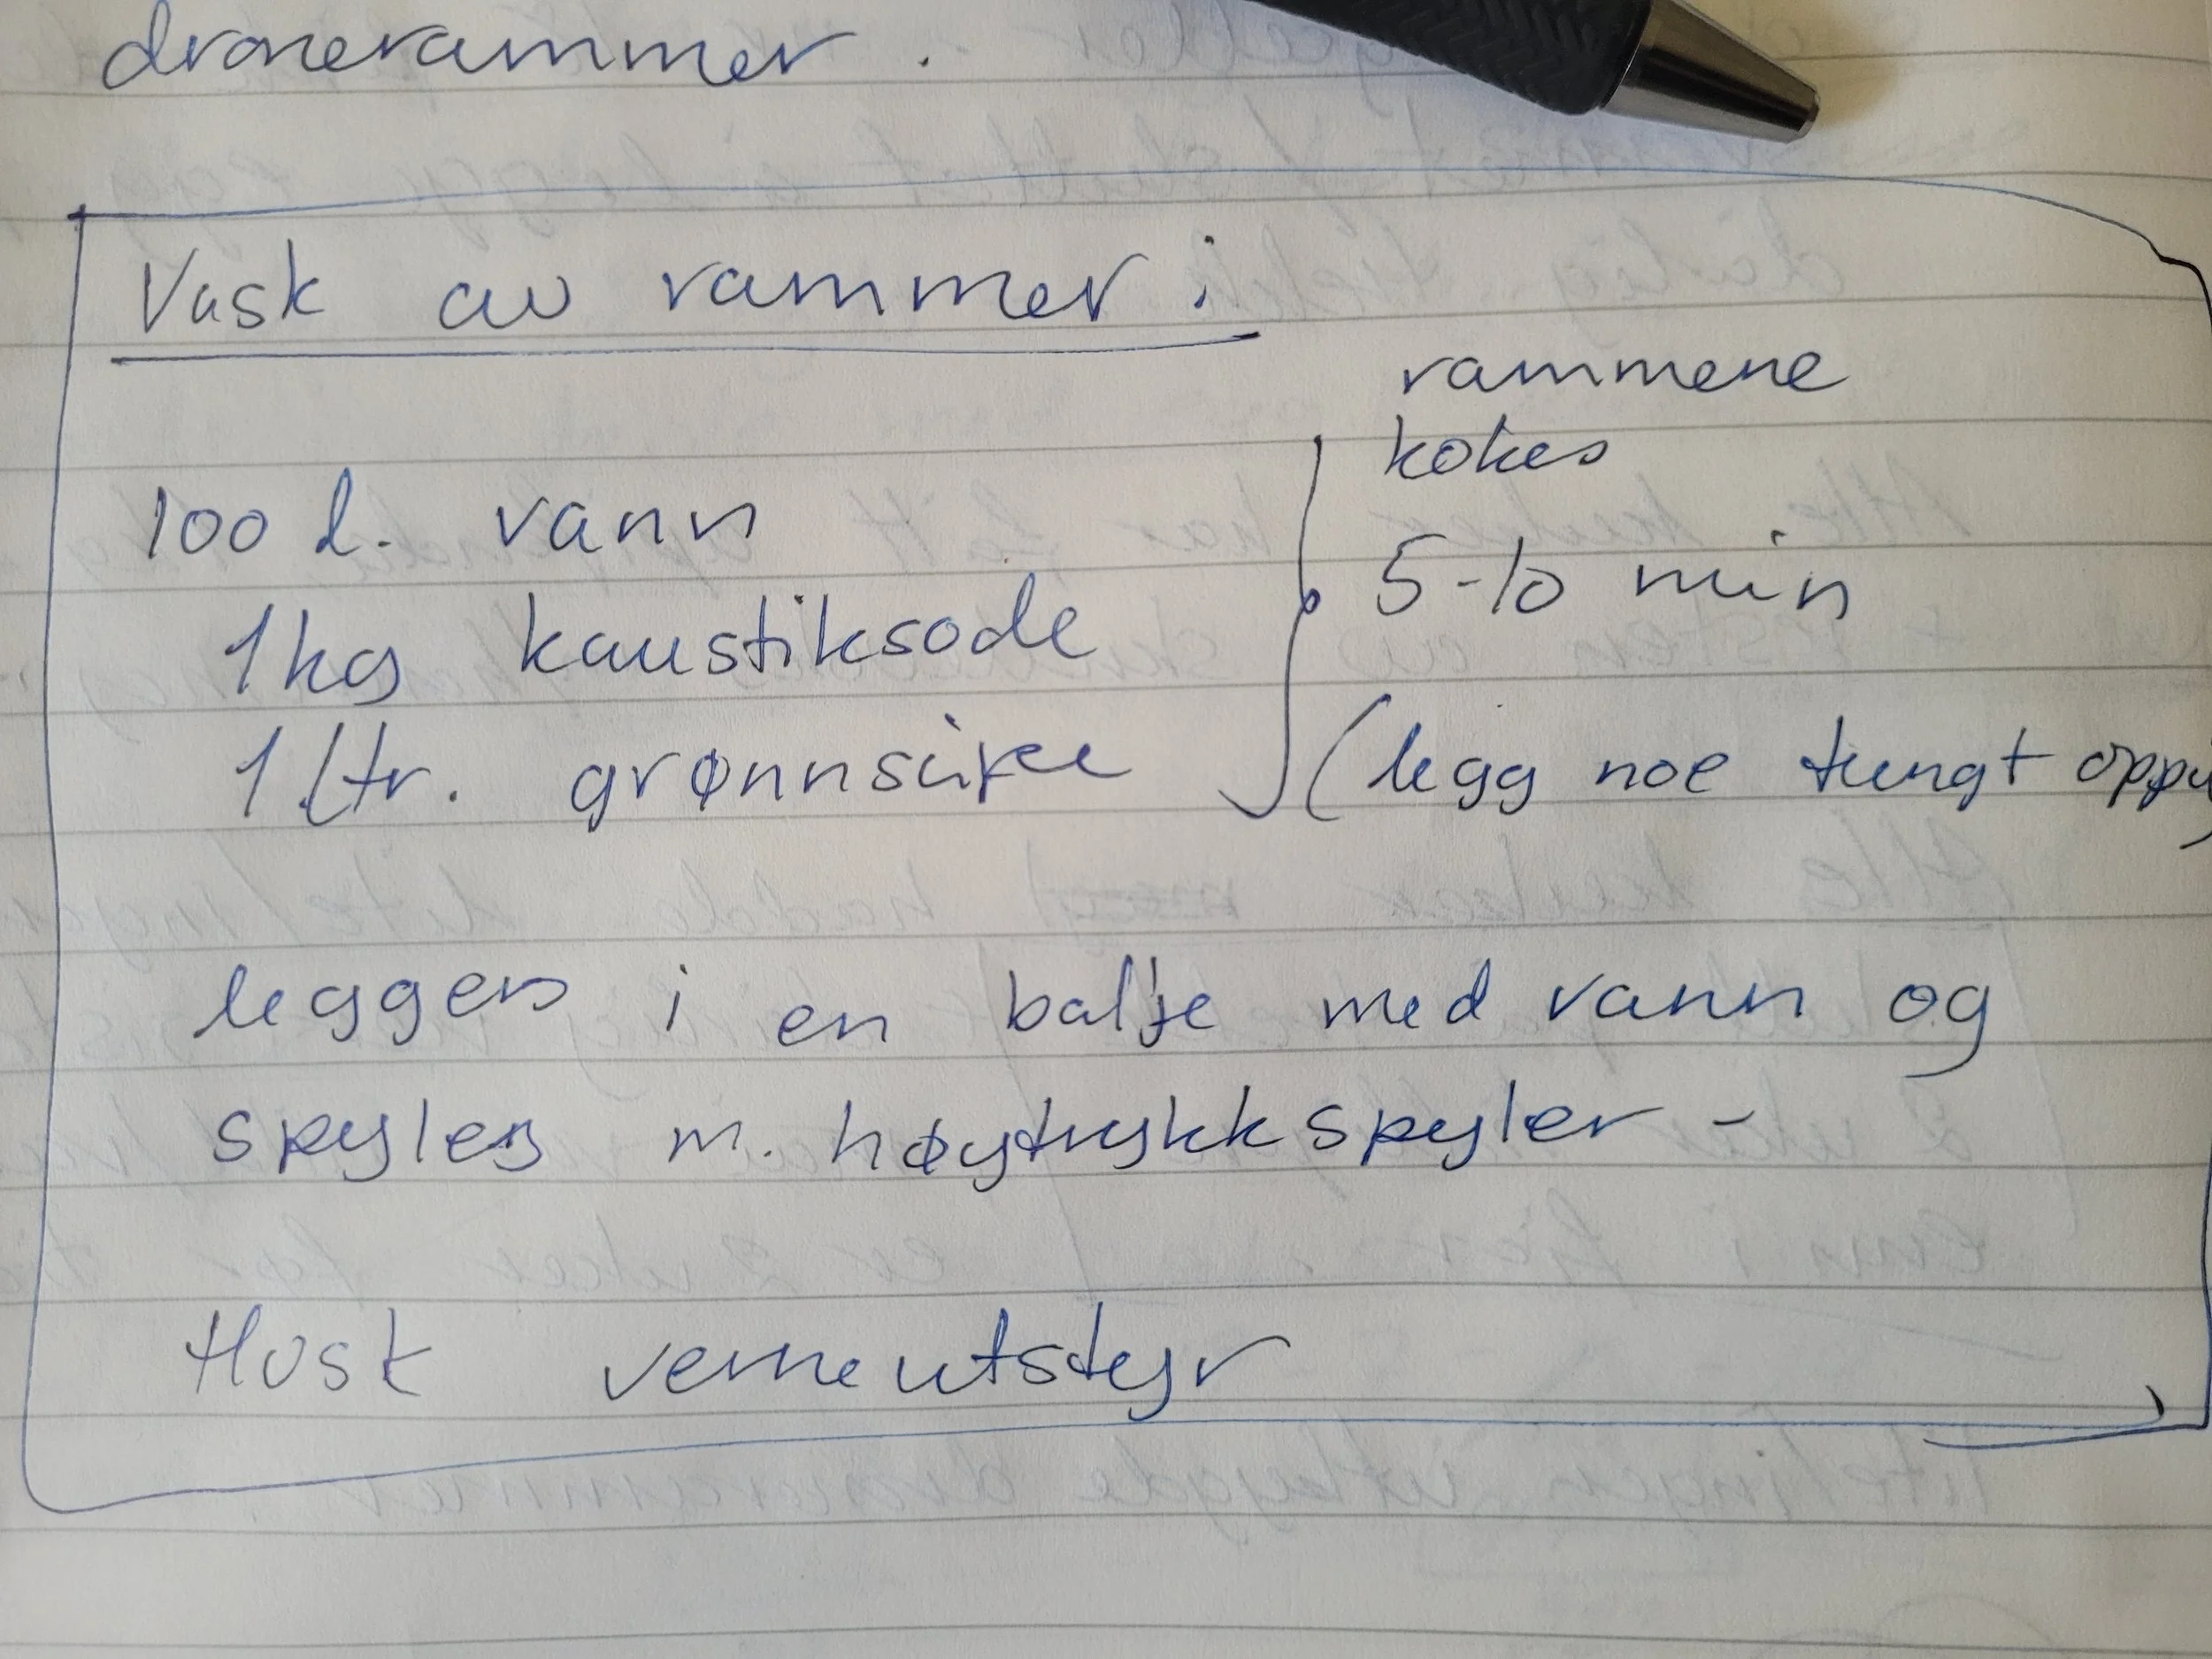 dronerammer.
Vask av rammer:
100 l. vann
1 kg kaustiksode
1 ltr. grønnsåpe
rammene
kokes
5-10 min
(legg noe tungt oppå)
legges i en balje med vann og
spyles m. høytrykkspyler -
Husk verneutstyr